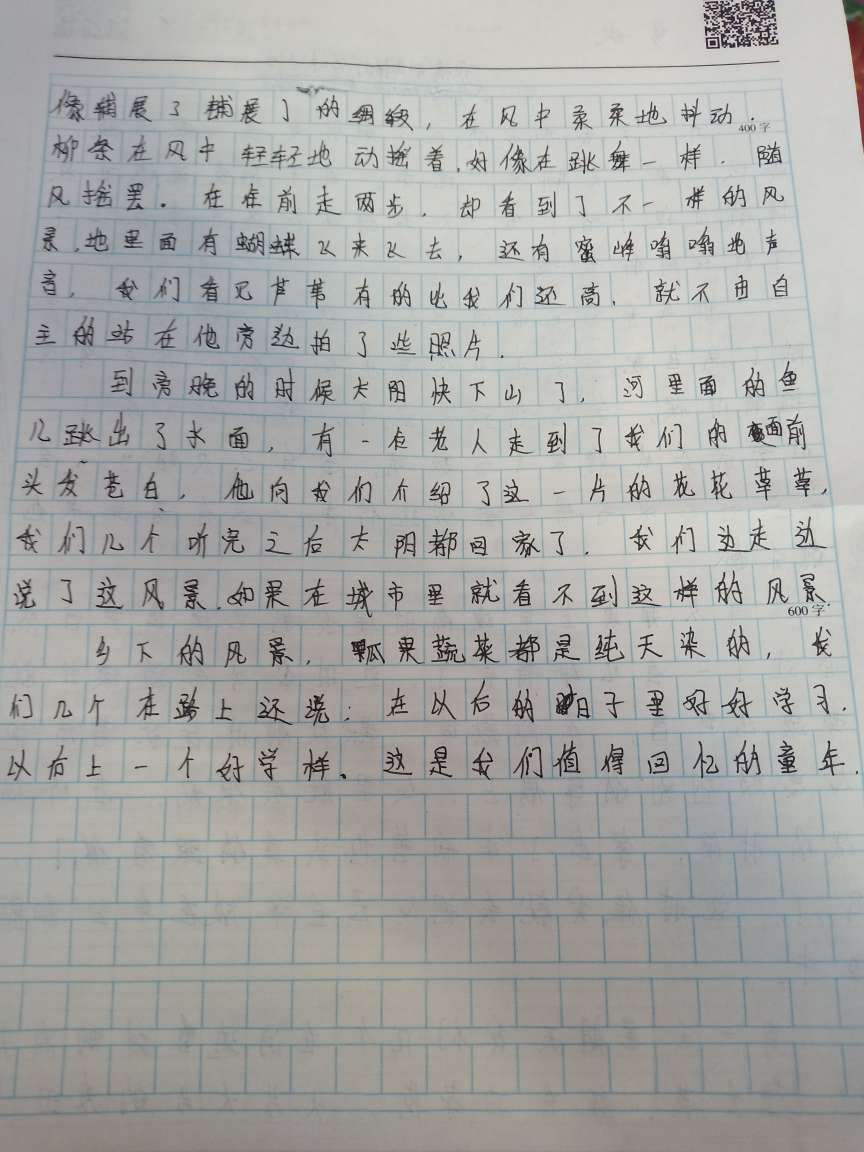 像铺展了铺展了的绸缎，在风中柔柔地抖动.
400字
柳条在风中轻轻地动摇着，好像在跳舞一样.随
风摇罢.在往前走两步，却看到了不一样的风
景，地里面有蝴蝶飞来飞去，还有蜜蜂嗡嗡地声
音，我们看见芦苇有的比我们还高，就不由自
主的站在他旁边拍了些照片.
到旁晚的时候太阳快下山了，河里面的鱼
儿跳出了水面，有一位老人走到了我们的面前
头发苍白，他向我们介绍了这一片的花花草草，
我们几个听完之后太阳都回家了.我们边走边
说了这风景，如果在城市里就看不到这样的风景.
600字
乡下的风景，瓜果蔬菜都是纯天染的，我
们几个在路上还说：在以后的日子里好好学习.
以后上一个好学样、这是我们值得回忆的童年.